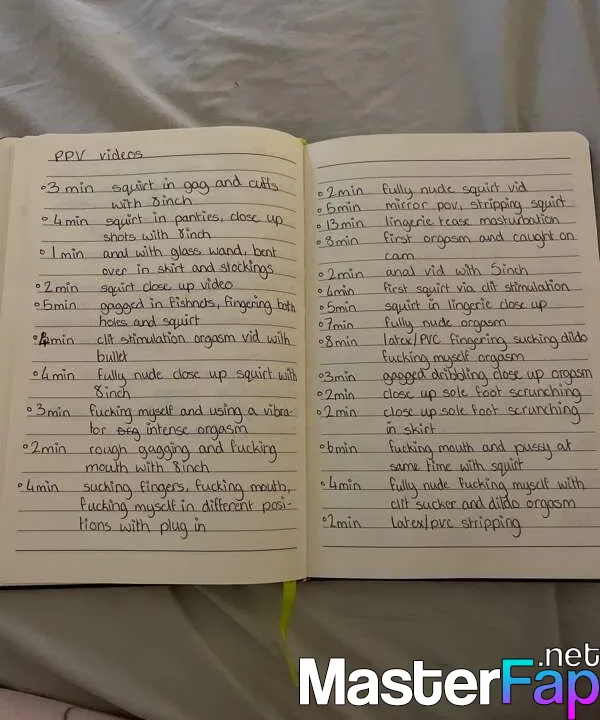 PPV videos
3 min squirt in gag and cuffs
with 8inch
4 min squirt in panties, close up
shots with 8inch
1 min anal with glass wand, bent
over in skirt and stockings
2min squirt close up video
5min gagged in fishnets, fingering both
holes and squirt
4min clit stimulation orgasm vid with
bullet
4 min fully nude close up squirt with
8inch
3min fucking myself and using a vibra-
tor intense orgasm
2min rough gagging and fucking
mouth with 8inch
4min sucking fingers, fucking mouth,
fucking myself in different posi-
tions with plug in
2min fully nude squirt vid
5min mirror pov, stripping squirt
13min lingerie tease masturbation
8min first orgasm and caught on
cam
2min anal vid with 5inch
4min first squirt via clit stimulation
5min squirt in lingerie close up
7min fully nude orgasm
8min latex/PVC fingering, sucking dildo
fucking myself orgasm
3min gagged dribbling close up orgasm
2min close up sole foot scrunching
2min close up sole foot scrunching
in skirt
6min fucking mouth and pussy at
same time with squirt
4min fully nude fucking myself with
clit sucker and dildo orgasm
2min latex/pvc stripping
MasterFap.net